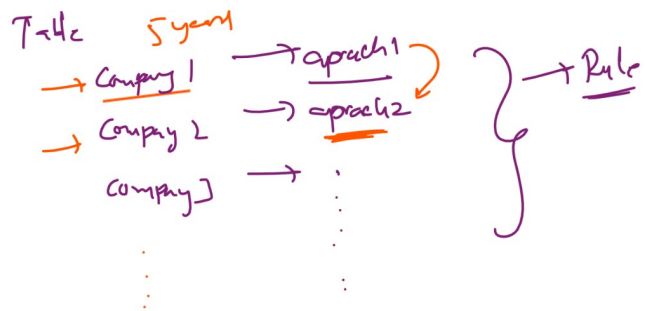 Table 5 years
Company 1 → aproach1
Company 2 → aproach2 → Rule
Company 3 →